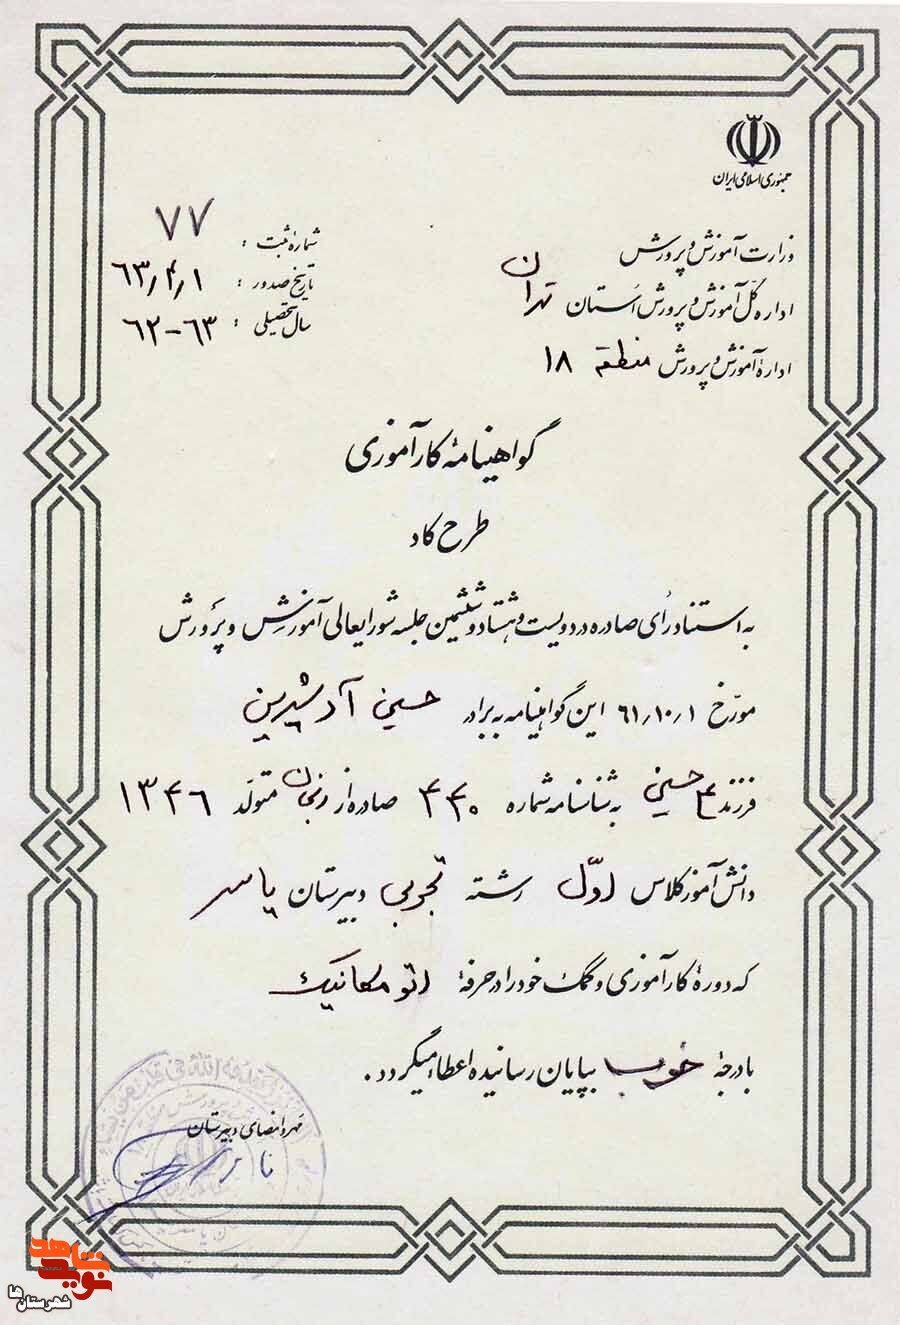 جمهوری اسلامی ایران
وزارت آموزش و پرورش
اداره کل آموزش و پرورش استان تهران
اداره آموزش و پرورش منطقه ۱۸
شماره ثبت : ۷۷
تاریخ صدور : ۶۳٫۴٫۱
سال تحصیلی : ۶۳-۶۲
گواهینامه کارآموزی
طرح کاد
به استناد رأی صادره در دویست و هشتاد و ششمین جلسه شورایعالی آموزش و پرورش
مورّخ ۶۱٫۱۰٫۱ این گواهینامه به برادر حسین آدشیرین
فرزند حسین به شناسنامه شماره ۴۴۰ صادره از زنجان متولد ۱۳۴۶
دانش آموز کلاس اوّل رشته تجربی دبیرستان یاسر
که دوره کارآموزی و کمک خود را در حرفه اتومکانیک
با درجه خوب بپایان رسانیده اعطاء میگردد.
مهر و امضای دبیرستان
نوید شاهد
شهرستان ها